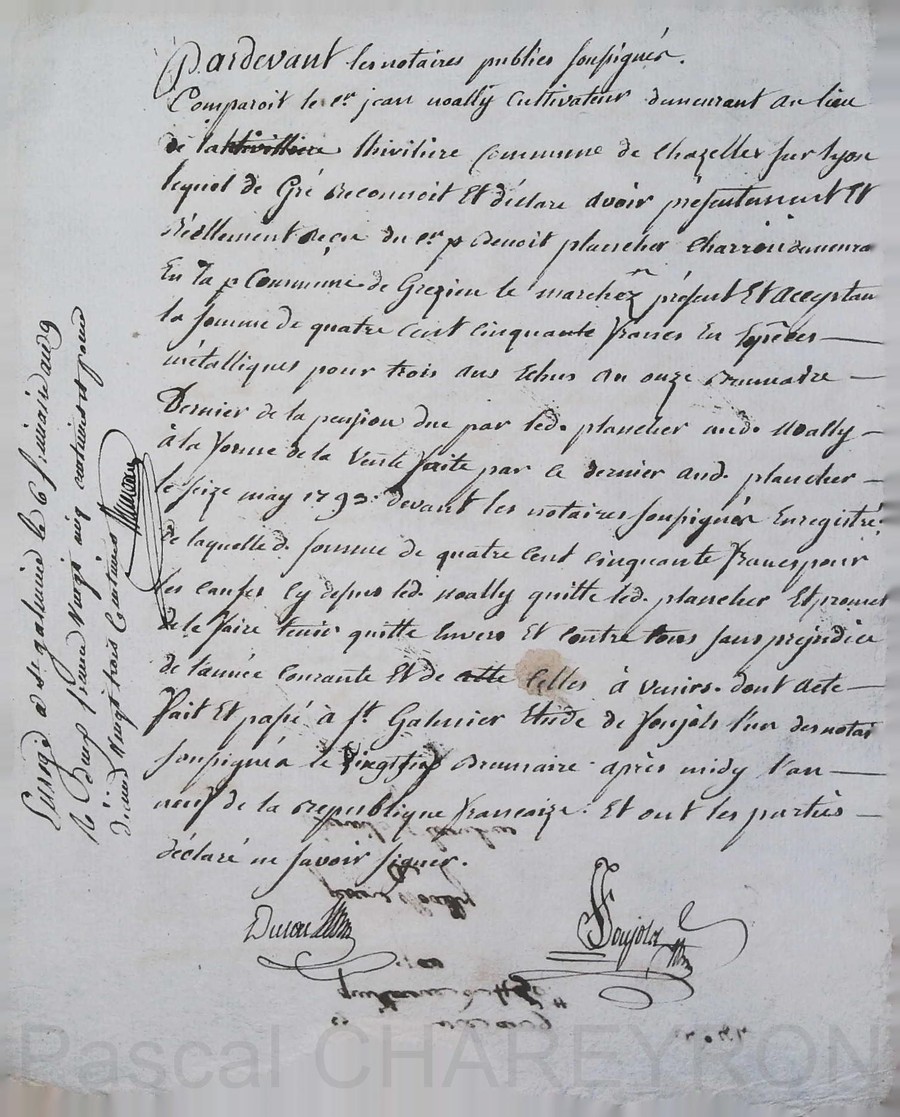 Pardevant les notaires publics soussignés.
Comparoit le cr. jean noally Cultivateur demeurant au lieu
de la thivilliere thiviliere commune de Chazelles sur lyon
lequel de Gré reconnoit Et déclare avoir présentement Et
réellement reçu du cr. p. Benoit plancher Charron demeura
En la p Commune de Grezieu le marchez présent Et acceptan
la somme de quatre cent cinquante francs En Espèces
métalliques pour trois ans Echus au onze Brumaire
Dernier de la pension due par led. plancher aud. noally
à la forme de la Vente faite par ce dernier aud. plancher
le seize may 1793. devant les notaires soussignés Enregistré.
De laquelle d. somme de quatre cent cinquante francs pour
les causes cy depuis led. noally quitte led. plancher Et promet
de le faire tenir quitte Envers Et contre tous sans prejudice
de l'année courante Et de cette Celles à venirs. dont acte
Fait Et passé à St. Galmier Etude de Soujols l'un des notai
soussignés le Brumaire après midy l'an
neuf de la republique francaize. Et ont les parties
déclaré ne savoir signer.
Soujols
Enregé à St galmier le 6 frimaire an 9
Rx Deux francs vingt cinq centimes et pour
decime vingt trois Centimes
Pascal CHAREYRON